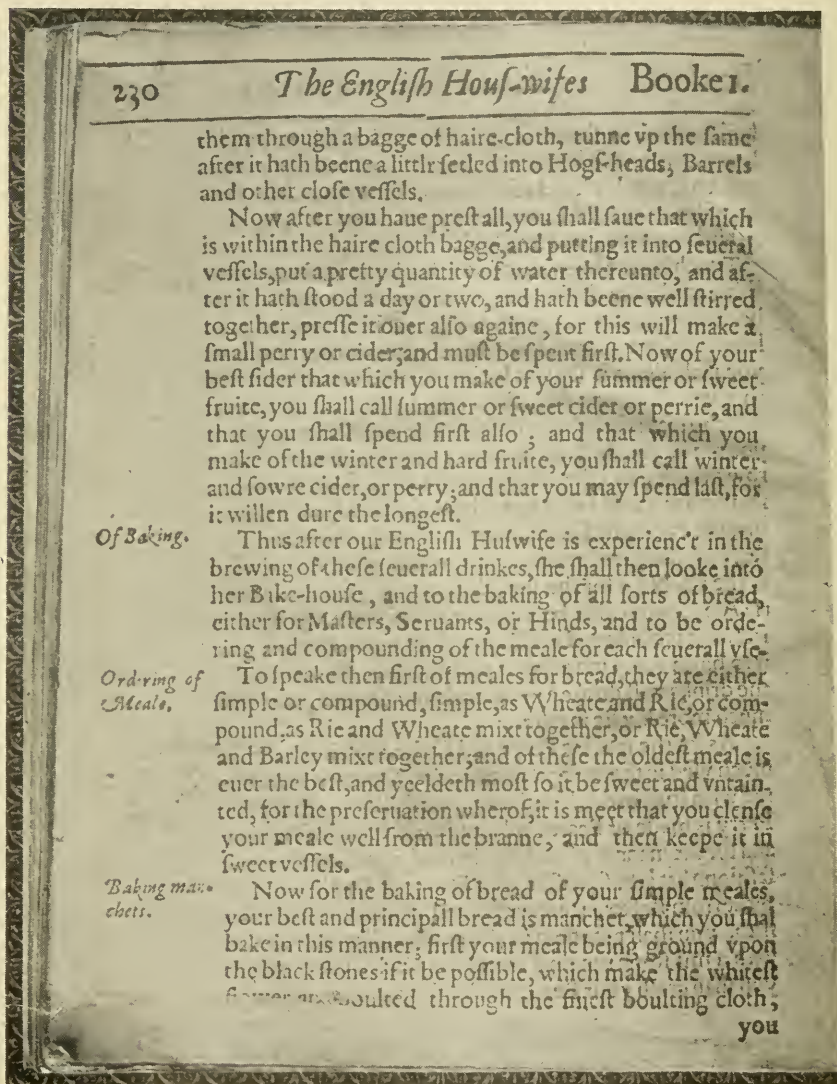 230 The Engliſh Houſ-wifes Booke 1.
them through a bagge of haire-cloth, tunne vp the ſame
after it hath beene a littlr ſetled into Hogſ-heads, Barrels
and other cloſe veſſels.
Now after you haue preſt all, you ſhall ſaue that which
is within the haire cloth bagge, and putting it into ſeueral
veſſels, put a pretty quantity of water thereunto, and af-
ter it hath ſtood a day or two, and hath beene well ſtirred
together, preſſe it ouer alſo againe, for this will make a
ſmall perry or cider; and muſt be ſpent firſt. Now of your
beſt ſider that which you make of your ſummer or ſweet
fruite, you ſhall call ſummer or ſweet cider or perrie, and
that you ſhall ſpend firſt alſo; and that which you
make of the winter and hard fruite, you ſhall call winter
and ſowre cider, or perry; and that you may ſpend laſt, for
it willen dure the longeſt.
Of Baking.
Thus after our Engliſh Huſwife is experienc't in the
brewing of theſe ſeuerall drinkes, ſhe ſhall then looke into
her Bake-houſe, and to the baking of all ſorts of bread,
either for Maſters, Seruants, or Hinds, and to be orde-
ring and compounding of the meale for each ſeuerall vſe.
Ordring of
Meale.
To ſpeake then firſt of meales for bread, they are either
ſimple or compound, ſimple, as Wheate and Rie, or com-
pound, as Rie and Wheate mixt together, or Rie, Wheate
and Barley mixt together; and of theſe the oldeſt meale is
euer the beſt, and yeeldeth moſt ſo it be ſweet and vntain-
ted, for the preſeruation wherof, it is meet that you clenſe
your meale well from the branne, and then keepe it in
ſweet veſſels.
Baking man-
chets.
Now for the baking of bread of your ſimple meales,
your beſt and principall bread is manchet, which you ſhal
bake in this manner; firſt your meale being ground vpon
the black ſtones if it be poſſible, which make the whiteſt
boulted through the fineſt boulting cloth,
you